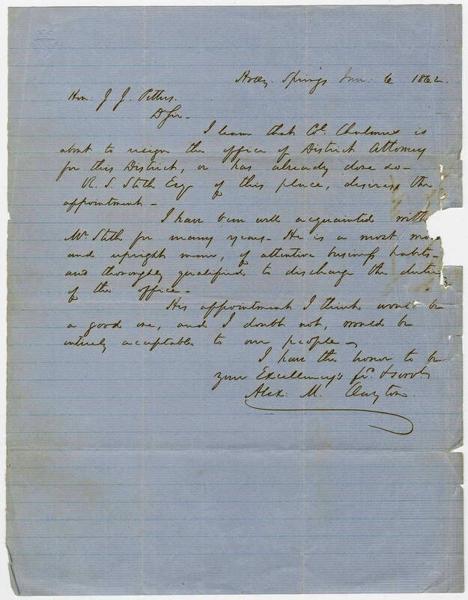 Holly Springs Jan. 6 1862
Hon. J. J. Pettus.
D Sir.
I learn that Col. Chalmers is
about to resign the office of District Attorney
for this District, or has already done so—
R. S. Stith Esq of this place, desires the
appointment—
I have been well acquainted with
Mr Stith for many years— He is a most
and upright man, of attentive business habits—
and thoroughly qualified to discharge the duties
of the office—
His appointment I think would be
a good one, and I doubt not, would be
entirely acceptable to our people—
I have the honor to be
your Excellency's fr. & servt
Alex. M. Clayton